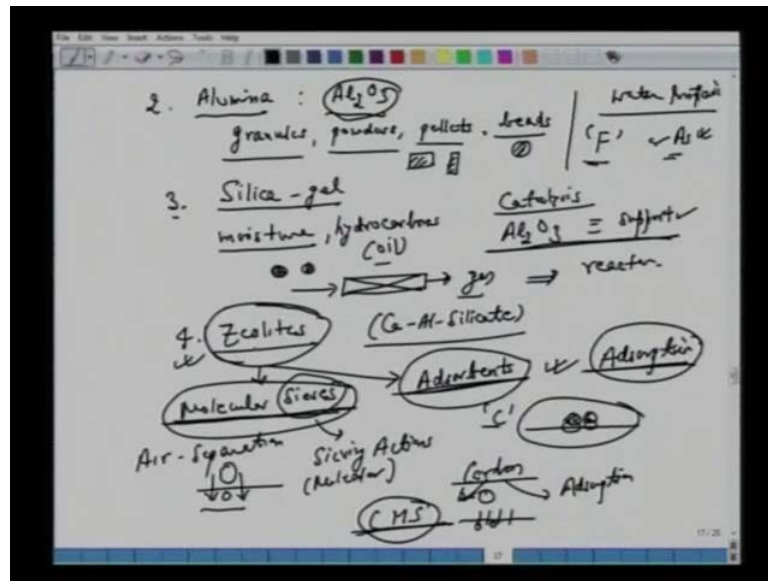 File Edit View Insert Actions Tools Help
2. Alumina : Al2O3
granules, powders, pellets, beads
'F' As
3. Silica-gel
moisture, hydrocarbons
(oil)
Catalysis
Al2O3 ≡ support
gas ⇒ reactor.
4. Zeolites (Ca-Al-Silicate)
Molecular Sieves
Adsorbents
Adsorption
'C'
Air-Separation
Sieving Actions
(Molecular)
Carbon
Adsorption
CMS
17/28
17